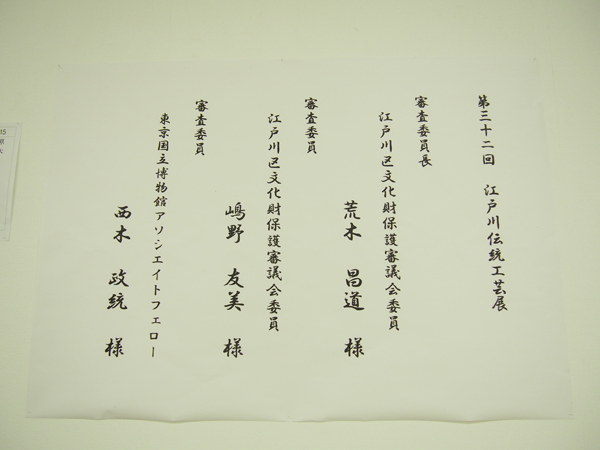 第三十二回 江戸川伝統工芸展
審査委員長
江戸川区文化財保護審議会委員
荒木 昌道 様
審査委員
江戸川区文化財保護審議会委員
嶋野 友美 様
審査委員
東京国立博物館アソシエイトフェロー
西木 政統 様